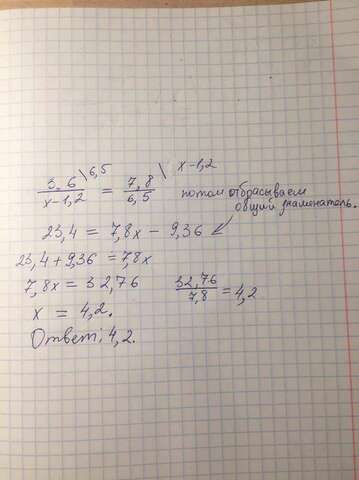 3,6 \6,5 / x-1,2 = 7,8 \x-1,2 / 6,5 потом отбрасываем
общий знаменатель.
23,4 = 7,8x - 9,36
23,4 + 9,36 = 7,8x
7,8x = 32,76 32,76 / 7,8 = 4,2
x = 4,2.
Ответ: 4,2.